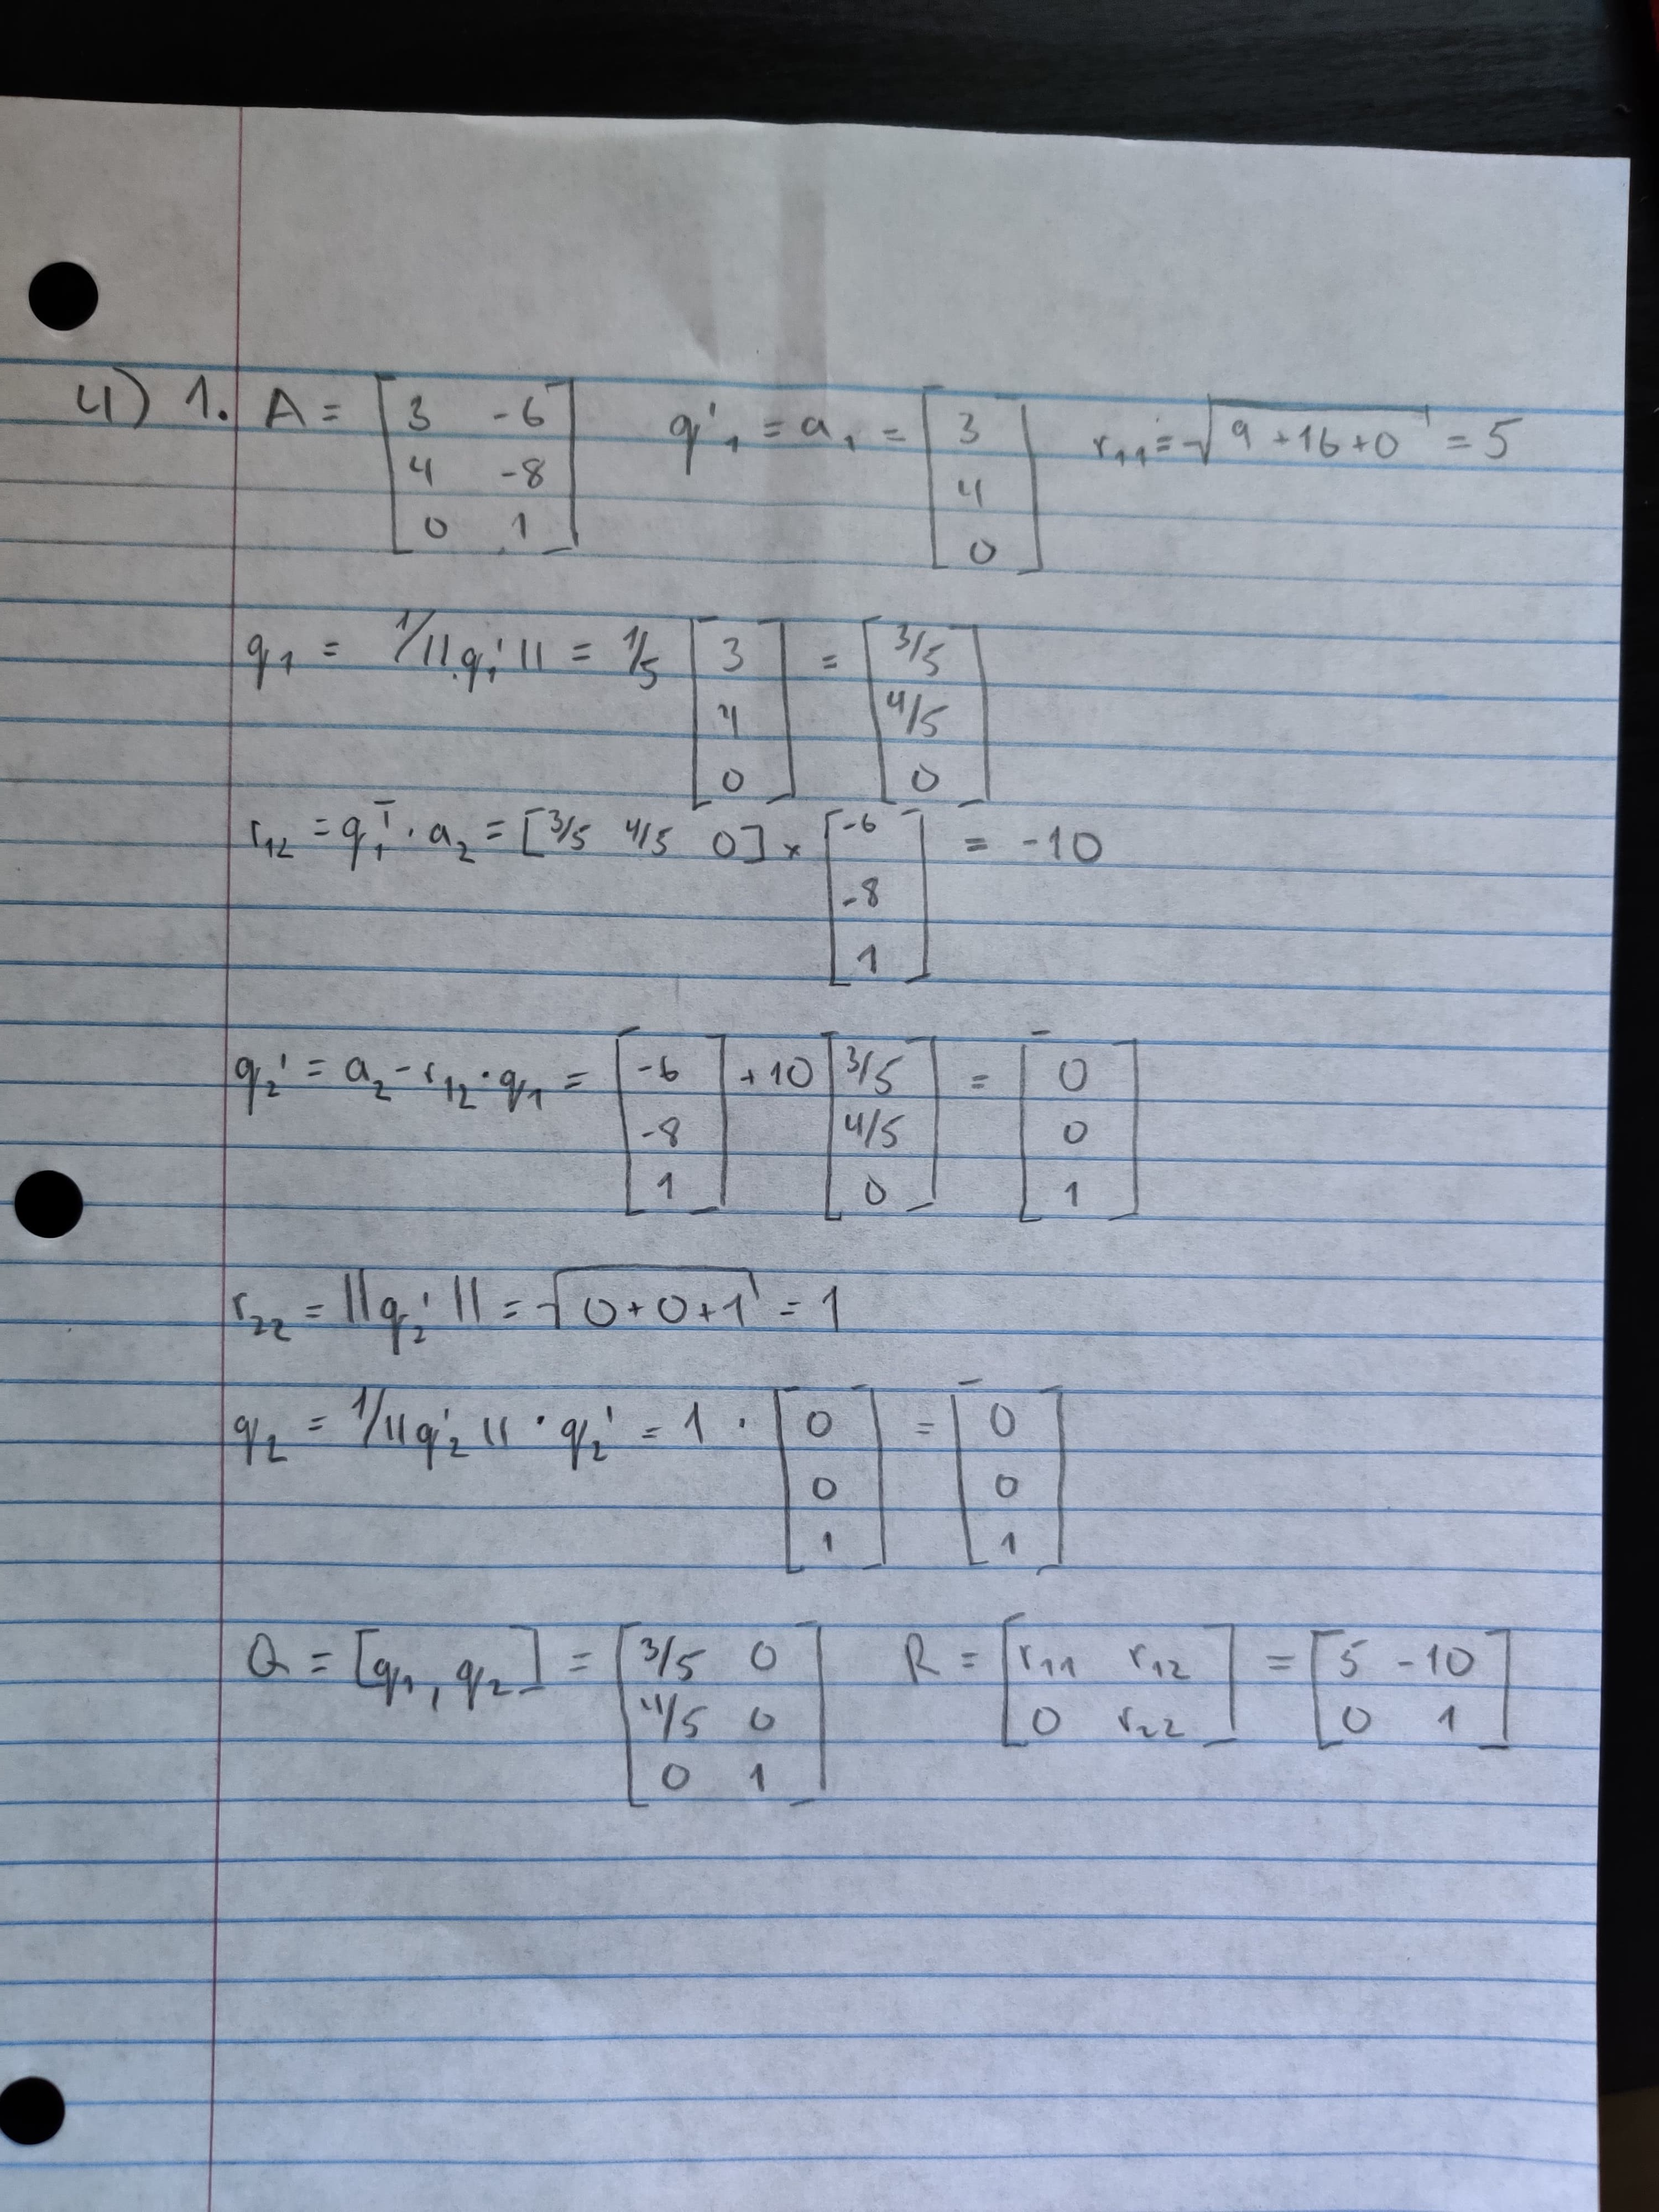 4) 1. A = [3 -6; 4 -8; 0 1] q'₁ = a₁ = [3; 4; 0] r₁₁ = √(9+16+0) = 5
q₁ = 1/||q₁'|| = 1/5 [3; 4; 0] = [3/5; 4/5; 0]
r₁₂ = q₁ᵀ · a₂ = [3/5 4/5 0] × [-6; -8; 1] = -10
q₂' = a₂ - r₁₂ · q₁ = [-6; -8; 1] + 10 [3/5; 4/5; 0] = [0; 0; 1]
r₂₂ = ||q₂'|| = √(0+0+1) = 1
q₂ = 1/||q₂'|| · q₂' = 1 · [0; 0; 1] = [0; 0; 1]
Q = [q₁, q₂] = [3/5 0; 4/5 0; 0 1] R = [r₁₁ r₁₂; 0 r₂₂] = [5 -10; 0 1]